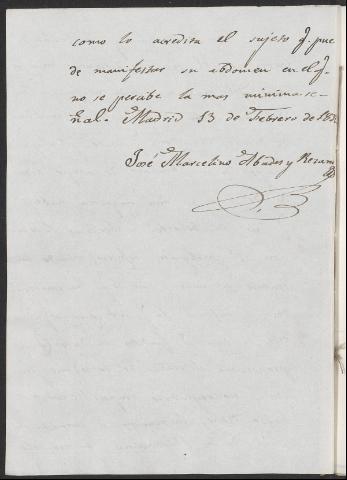 como lo acredita el sujeto q. pue
de manifestar su abdomen en el q.
no se percibe la mas minima se-
ñal. Madrid 13 de Febrero de
José Marcelino Abades y